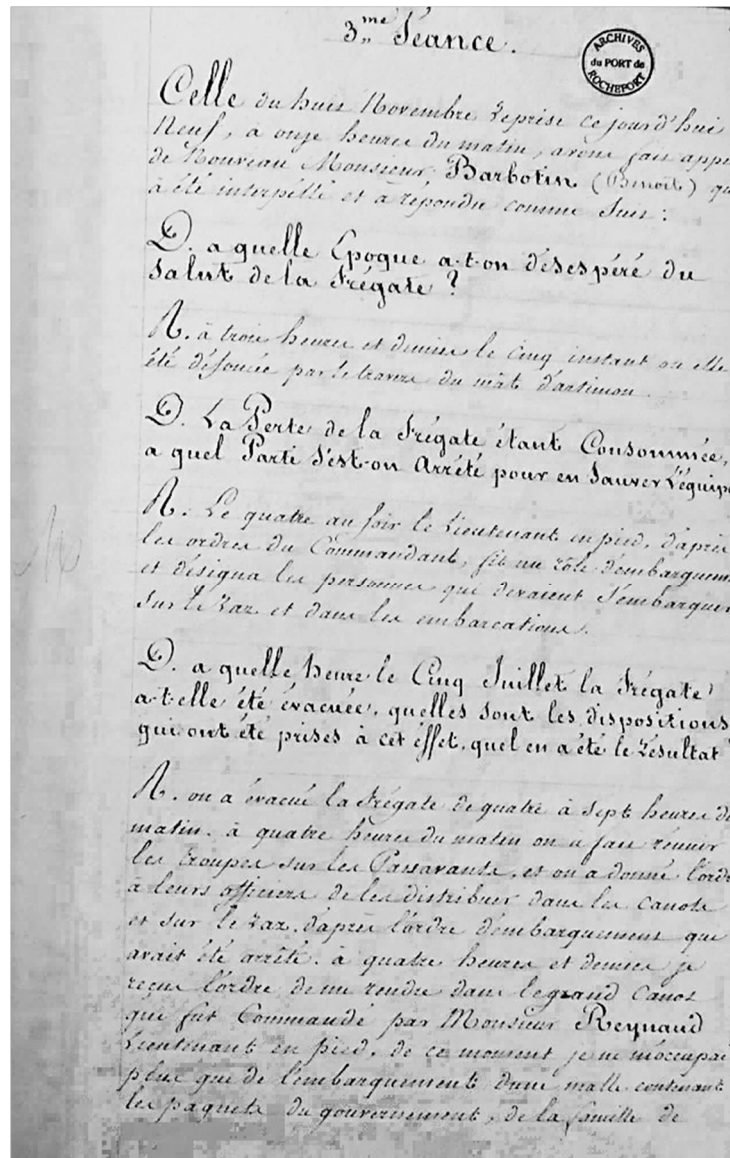 3me Séance.
ARCHIVES
du PORT de
ROCHEFORT
Celle du huit Novembre Reprise ce jourd'hui
Neuf, à onze heures du matin, avons fait appe
de Nouveau Monsieur Barbotin (Benoit) qu
à été interpellé et à répondu comme Suit :
D. a quelle Epoque a-t-on désespéré du
Salut de la Frégate ?
R. à trois heures et demies le Cinq instant ou elle
été défoncée par le travers du mât d'artimon.
D. La Perte de la Frégate étant Consommée,
a quel Parti S'est-on Arrêté pour en Sauver l'équipa
R. Le quatre au Soir le Lieutenant en pied, d'après
les ordres du Commandant, fit un rôle d'embarqueme
et désigna les personnes qui devaient S'embarquer
Sur le Raz et dans les embarcations.
D. a quelle heure le Cinq Juillet la Frégate
a-t-elle été évacuée, quelles sont les dispositions
qui ont été prises à cet éffet, quel en a été le Résultat
R. on a évacué la Frégate de quatre à Sept heures du
matin. à quatre heures du matin on a fait réunir
les troupes sur les Passavants, et on a donné l'ordr
à leurs officiers de les distribuer dans les canots
et sur le Raz, d'après l'ordre d'embarquement qui
avait été arrêté. à quatre heures et demies je
reçus l'ordre de me rendre dans le grand Canot
qui fut Commandé par Monsieur Reynaud
Lieutenant en pied, de ce moment je ne m'occupai
plus que de l'embarquement d'une malle contenant
les paquets du gouvernement, de la famille de